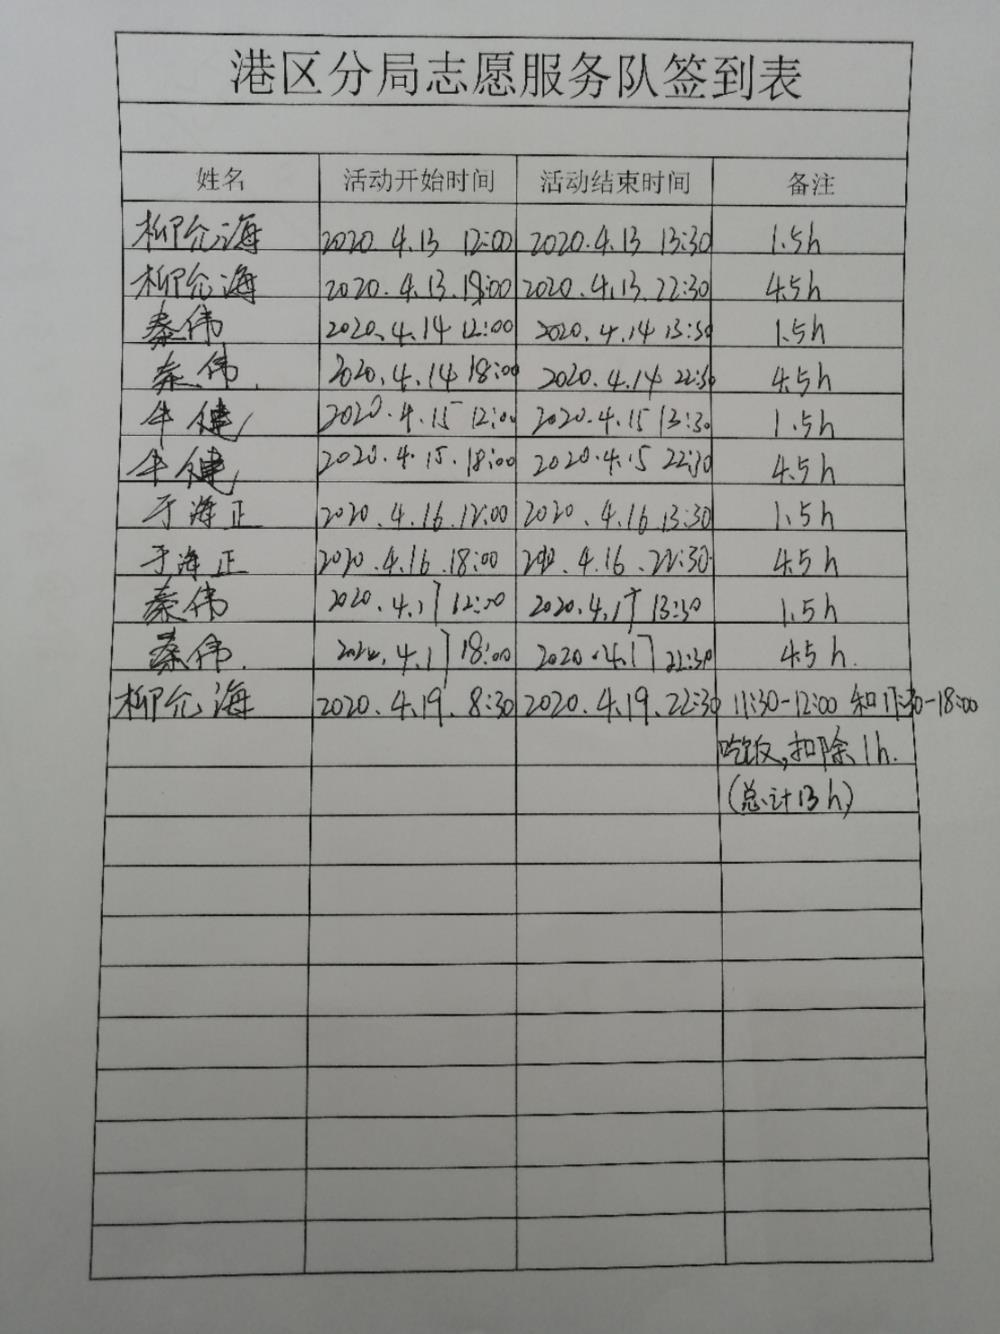 港区分局志愿服务队签到表
姓名 活动开始时间 活动结束时间 备注
柳允海 2020.4.13 12:00 2020.4.13 13:30 1.5h
柳允海 2020.4.13.18:00 2020.4.13.22:30 4.5h
秦伟 2020.4.14 12:00 2020.4.14 13:30 1.5h
秦伟. 2020.4.14 18:00 2020.4.14 22:30 4.5h
牛健 2020.4.15 12:00 2020.4.15 13:30 1.5h
牛健 2020.4.15.18:00 2020.4.15 22:30 4.5h
于海正 2020.4.16.12:00 2020.4.16 13:30 1.5h
于海正 2020.4.16.18:00 2020.4.16.22:30 4.5h
秦伟 2020.4.17 12:00 2020.4.17 13:30 1.5h
秦伟. 2020.4.17 18:00 2020.4.17 22:30 4.5h.
柳允海 2020.4.19.8:30 2020.4.19.22:30 11:30-12:00和17:30-18:00
吃饭,扣除1h.
(总计13h)